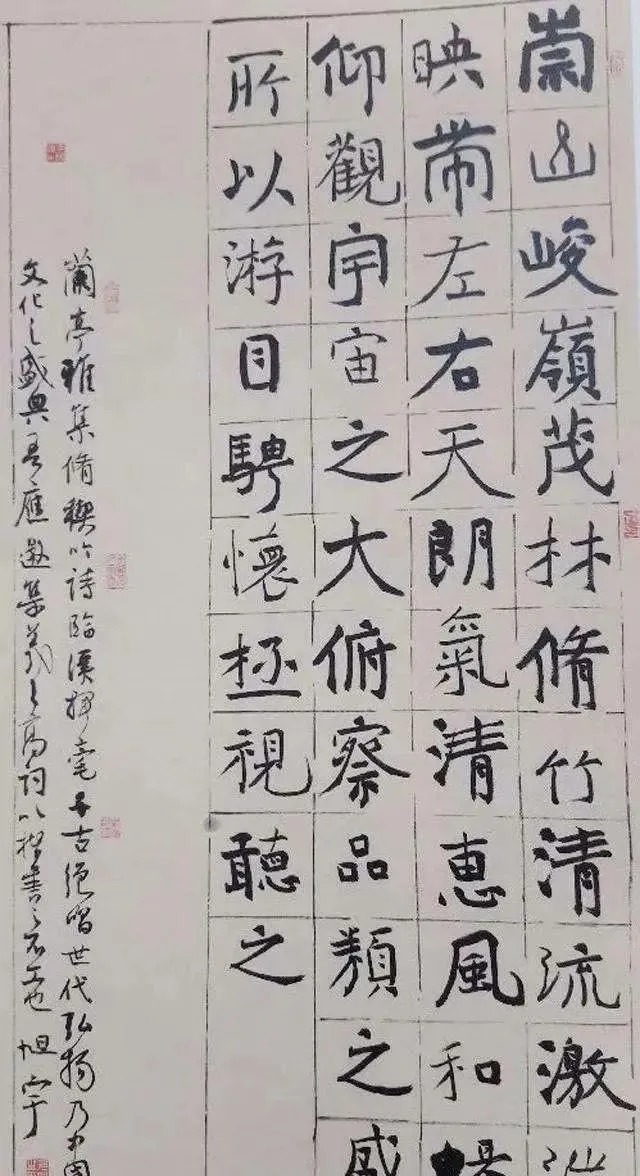 崇山峻嶺茂林脩竹清流激
映帶左右天朗氣清惠風和暢
仰觀宇宙之大俯察品類之盛
所以游目騁懷極視聽之
蘭亭雅集脩禊吟詩臨溪揮毫千古絕唱世代弘揚乃中國
文化之盛典吾應邀集羲之高詞以楷書之不工也 旭宇